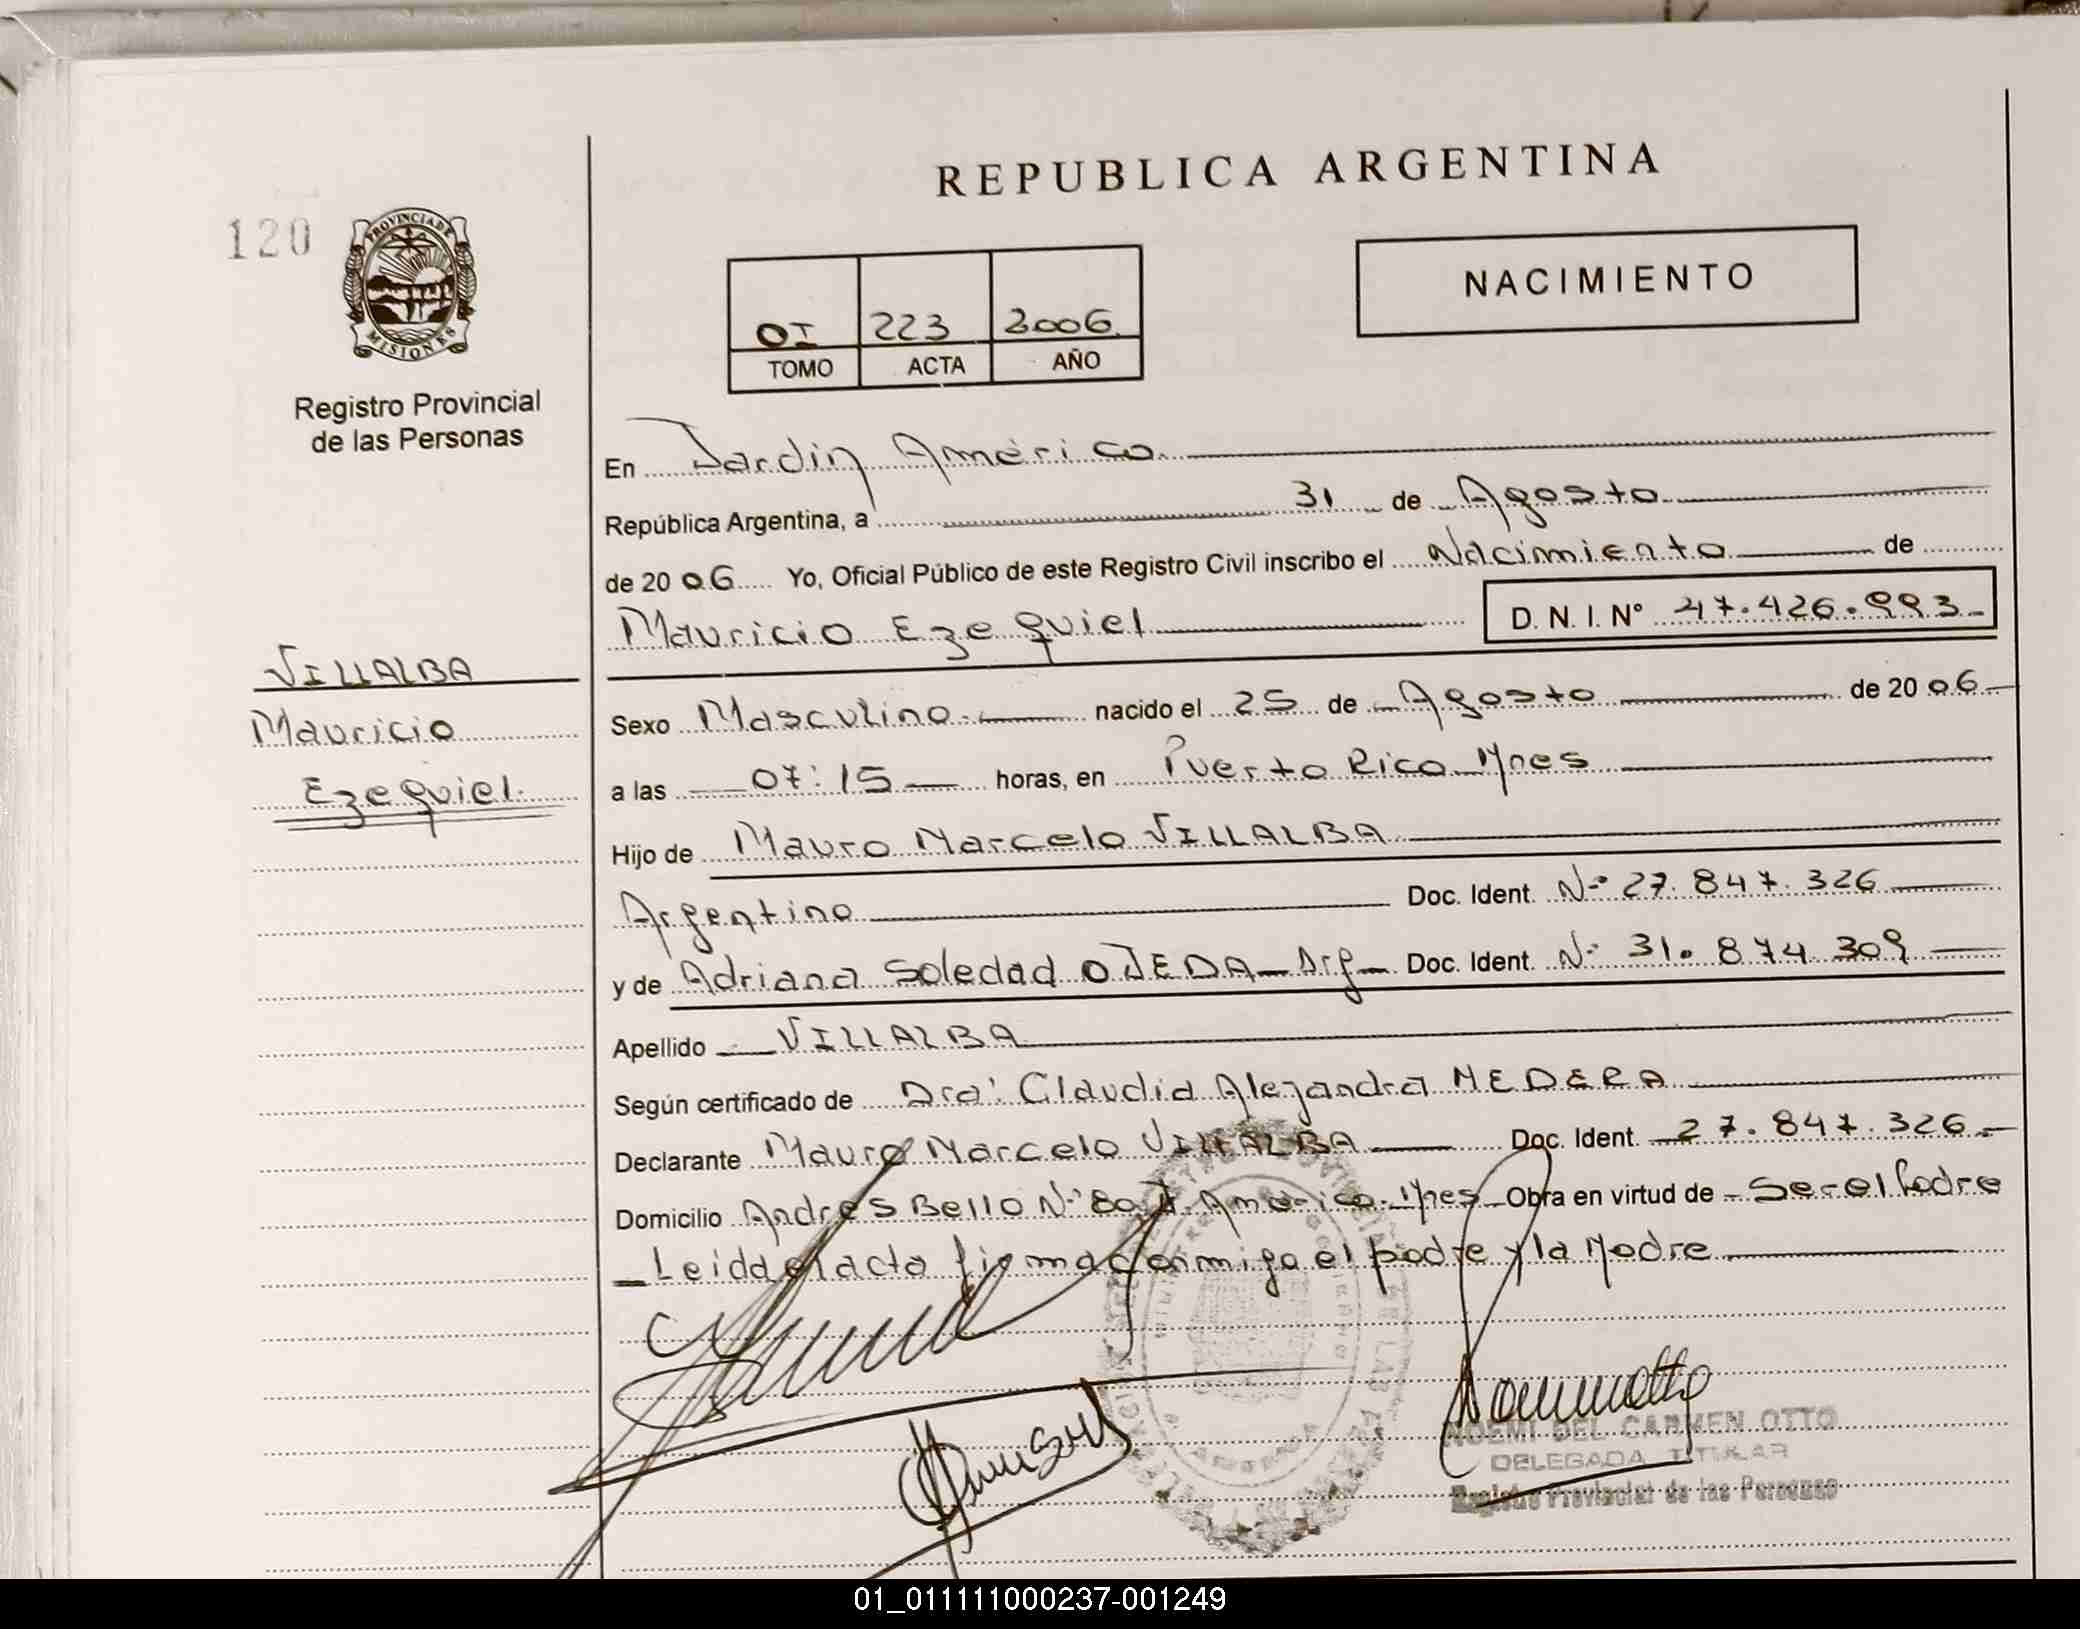 REPUBLICA ARGENTINA
120
PROVINCIA DE
MISIONES
NACIMIENTO
OI 223 2006
TOMO ACTA AÑO
Registro Provincial
de las Personas
En Jardin América
República Argentina, a 31 de Agosto
de 2006 Yo, Oficial Público de este Registro Civil inscribo el Nacimiento de
Mauricio Ezequiel D. N. I. Nº 47.426.993
VILLALBA
Mauricio
Ezequiel.
Sexo Masculino. nacido el 25 de Agosto de 2006
a las 07:15 horas, en Puerto Rico Mnes
Hijo de Mauro Marcelo VILLALBA
Argentino Doc. Ident. Nº 27.847.326
y de Adriana Soledad OJEDA Arg Doc. Ident. Nº 31.874.309
Apellido VILLALBA
Según certificado de Dra: Claudia Alejandra MEDERA
Declarante Mauro Marcelo VILLALBA Doc. Ident. 27.847.326
Domicilio Andres Bello Nº 80 J. América. Mnes Obra en virtud de Ser el Padre
Leida el acta firma conmigo el padre y la Madre
NOEMI DEL CARMEN OTTO
DELEGADA TITULAR
Registro Provincial de las Personas
01_011111000237-001249